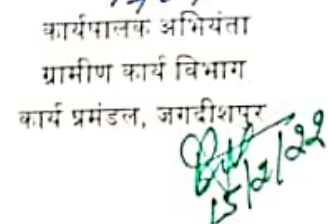 कार्यपालक अभियंता
ग्रामीण कार्य विभाग
कार्य प्रमंडल, जगदीशपुर
15/2/22